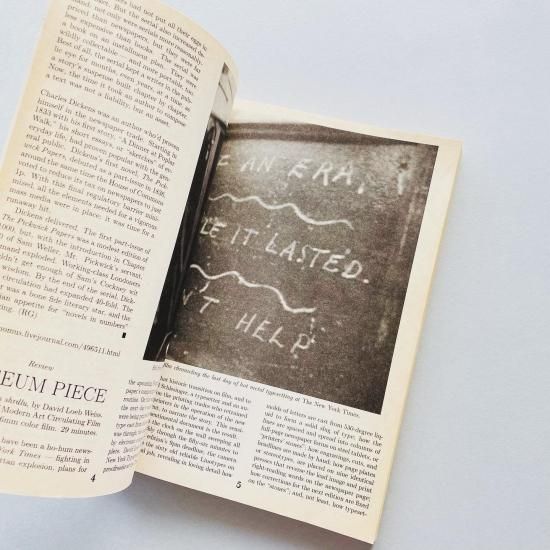 ers had not put all their eggs in
But the serial also increased de-
mand; not only were serials more reasonably
priced than newspapers, but they were far
less expensive than books. The serial was
a book on an installment plan. They were
wildly collectable—and more portable, too.
Best of all, the serial kept a writer in the pub-
lic eye for months, even years, at a time as
a story's suspense built chapter by chapter.
Now, the time it took an author to compose
a text was not a liability, but an asset.
Charles Dickens was an author who'd proven
himself in the newspaper trade. Starting in
1833 with his first story, "A Dinner at Poplar
Walk," his short essays, or "sketches" of ev-
eryday life, had proven popular with the gen-
eral public. Dickens's first novel, The Pick-
wick Papers, debuted as a part-issue in 1836,
around the same time the House of Commons
voted to reduce its tax on newspapers to
1p. With this final regulatory barrier mini-
mised, all the elements needed for a vigorous
mass media were in place; it was time for a
runaway hit.
Dickens delivered. The first part-issue of
The Pickwick Papers was a modest edition of
000, but, with the introduction in Chapter
of Sam Weller, Mr. Pickwick's servant,
mand exploded. Working-class Londoners
dn't get enough of Sam's Cockney wit
wisdom. By the end of the serial, Dick-
circulation had expanded 40-fold. The
r was a bone fide literary star, and the
ian appetite for "novels in numbers"
ting. (RG)
pomus.livejournal.com/496511.html
Review
EUM PIECE
shrdlu, by David Loeb Weiss.
Modern Art Circulating Film
6mm color film. 29 minutes.
have been a ho-hum news-
York Times — fighting in
ttan explosion, plans for
4
E AN ERA,
LE IT LASTED.
N'T HELP
film chronicling the last day of hot metal typesetting at The New York Times.
the upcoming
hat historic transition on film, and to
l Schlesinger, a typesetter and its au-
on the printing trades who retrained
printers in the operation of the new
nt, to narrate the story. This unsent-
entimental document is the result.
the clock on the wall sweeping all
through the fifty-six minutes to
edition's 9pm deadline, the camera
sixty old reliable Linotypes on
al job, revealing in loving detail how
molds of letters are cast from 530-degree liq-
uid to form a solid slug of type; how the
lines are spaced and spread into columns of
full-page newspaper forms on steel tablets, or
"printers' stones"; how engravings, cuts, and
headlines are made by hand; how page plates
or stereotypes, are placed on nine identical
presses that reverse the lead image and print
right-reading words on the newspaper page;
how corrections for the next edition are fixed
on the "stones"; and, not least, how typeset-
5